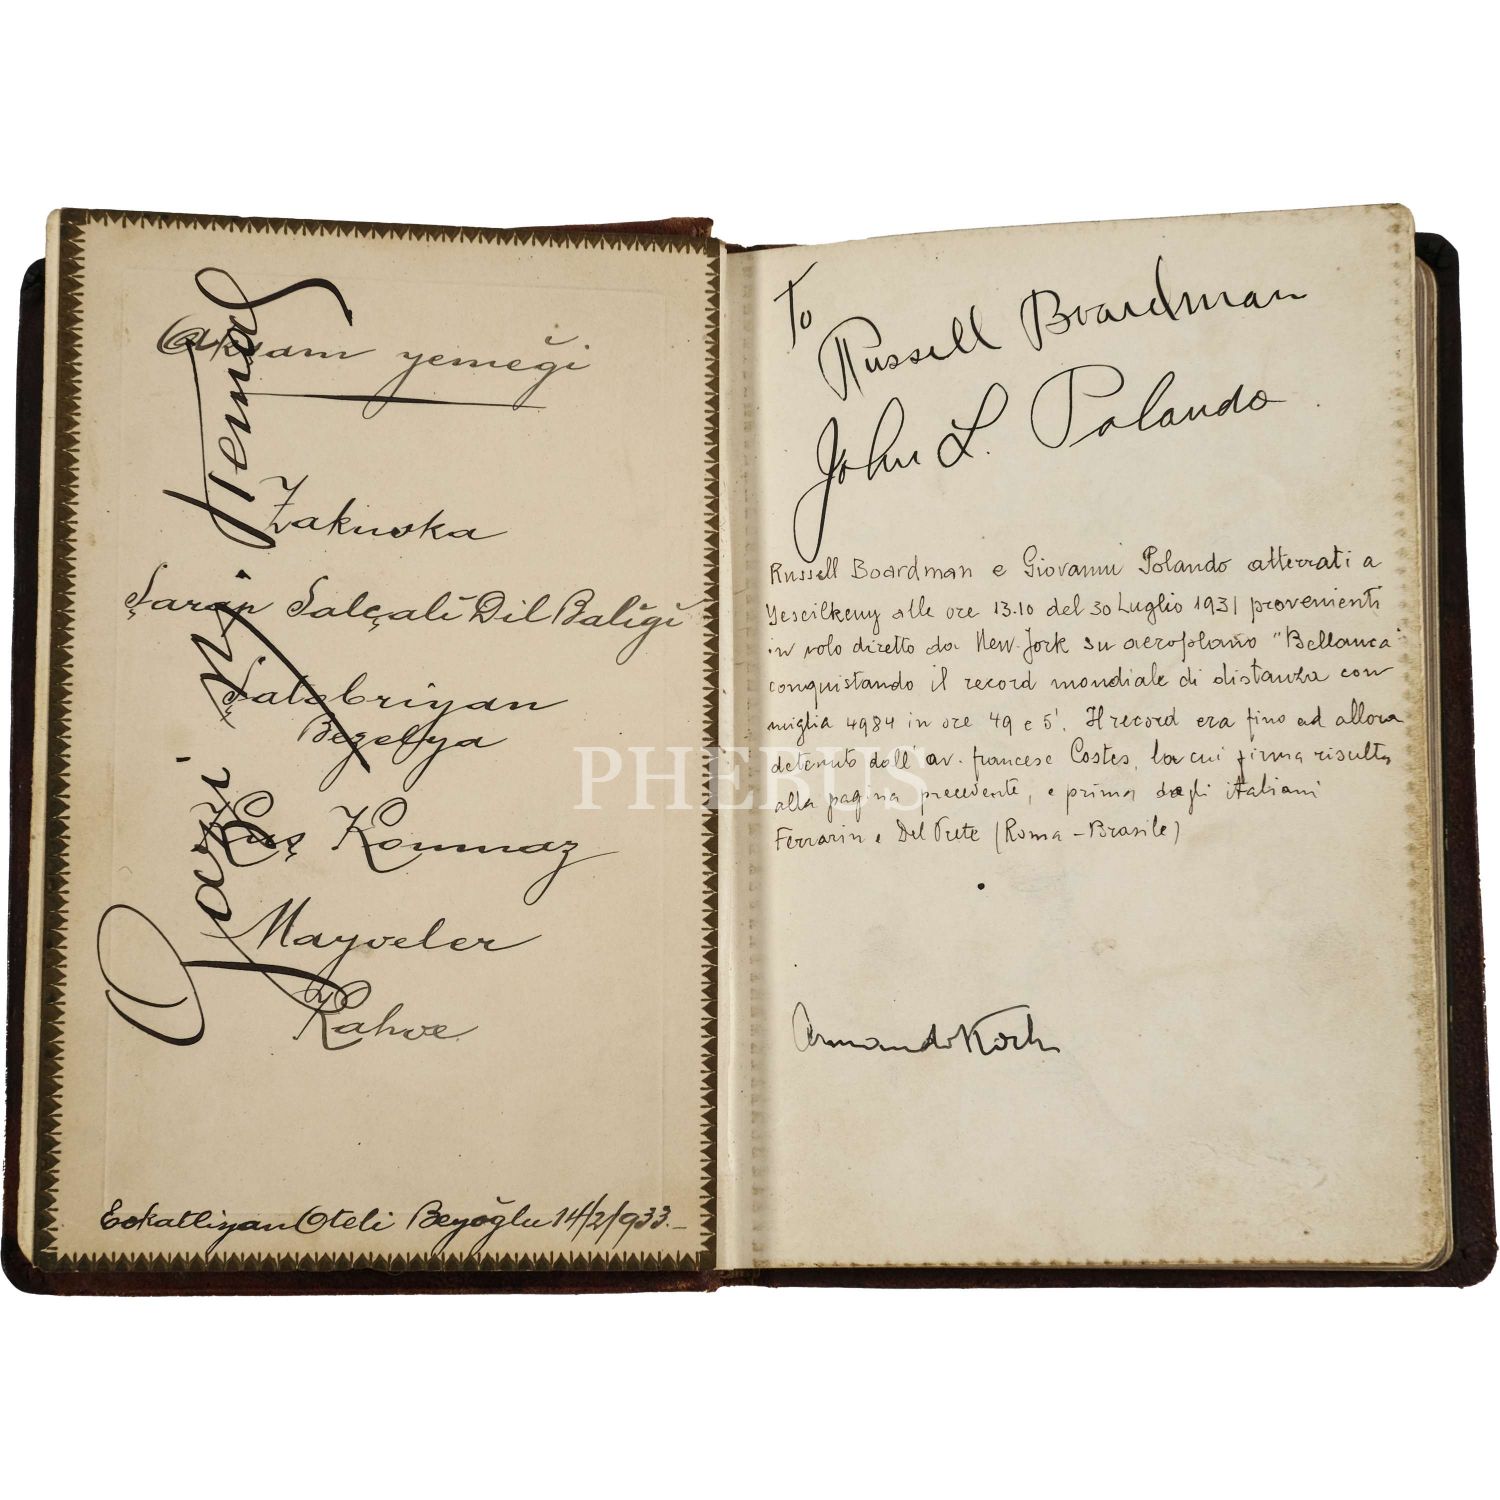 Akşam yemeği
Zakuska
Şarap Salçali Dil Baliği
Şatobriyan
Bezelya
Kuş Konmaz
Mayveler
Kahve
Gazi M. Kemal
Tokatliyan Oteli Beyoğlu 14/2/933.-
To
Russell Boardman
John L. Polando
Russell Boardman e Giovanni Polando atterrati a
Yescilkeuy alle ore 13.10 del 30 Luglio 1931 provenienti
in volo diretto da New-Jork su aeroplano "Bellanca"
conquistando il record mondiale di distanza con
miglia 4984 in ore 49 e 5'. Il record era fino ad allora
detenuto dall' av. francese Costes, la cui firma risulta
alla pagina precedente, e prima dagli italiani
Ferrarin e Del Prete (Roma - Brasile)
Armando Koch
PHEBUS